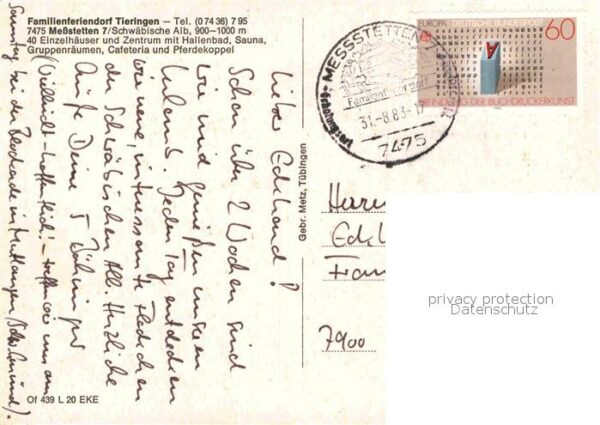 Familienferiendorf Tieringen – Tel. (0 74 36) 7 95
7475 Meßstetten 7/Schwäbische Alb, 900–1000 m
40 Einzelhäuser und Zentrum mit Hallenbad, Sauna,
Gruppenräumen, Cafeteria und Pferdekoppel
EUROPA DEUTSCHE BUNDESPOST
60
A
ERFINDUNG DER BUCHDRUCKERKUNST
MESSSTETTEN 7
Familienferiendorf
Erholungsort
31.-8.83-17
7475
Lieber Eckehard!
Schon über 2 Wochen sind
wir und genießen unseren
Urlaub. Jeden Tag entdecken
wir neue, interessante Fleckchen
der Schwäbischen Alb. Herzliche
Grüße Deine 5
(Vielleicht - hoffentlich! - treffen wir uns am
Samstag bei der Blockade in Mutlangen (Schw. Gmünd).
Gebr. Metz, Tübingen
Herrn
7900
privacy protection
Datenschutz
Of 439 L 20 EKE